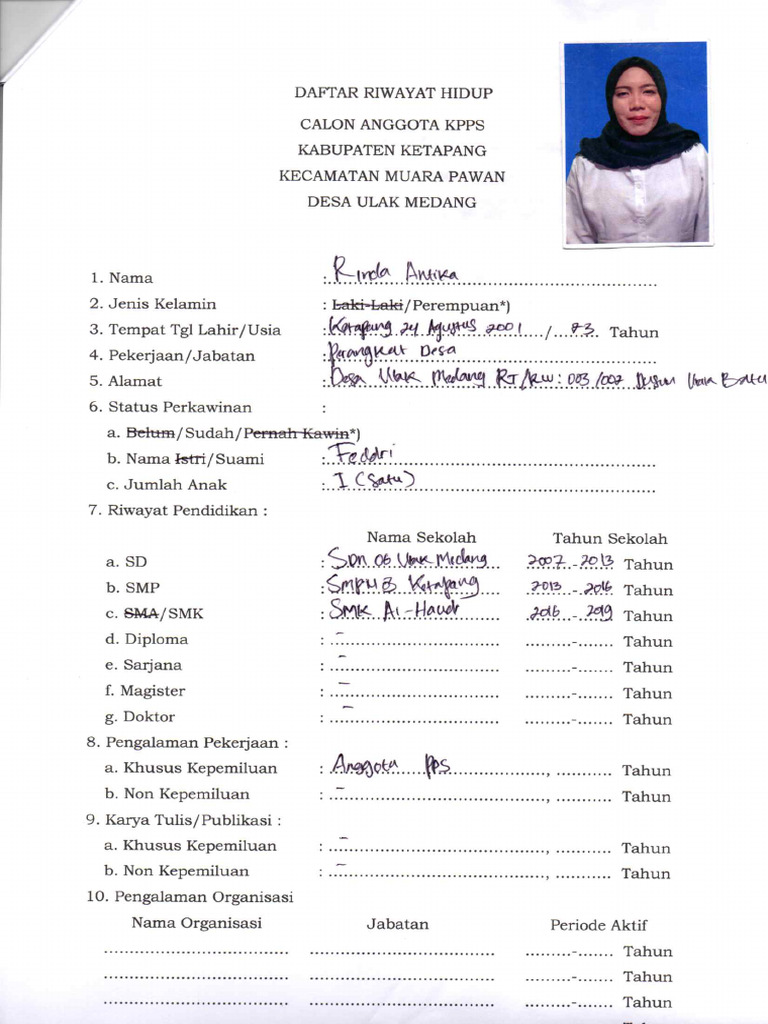 DAFTAR RIWAYAT HIDUP
CALON ANGGOTA KPPS
KABUPATEN KETAPANG
KECAMATAN MUARA PAWAN
DESA ULAK MEDANG
1. Nama : Rinda Antika
2. Jenis Kelamin : Laki-Laki/Perempuan*)
3. Tempat Tgl Lahir/Usia : Ketapang 24 Agustus 2001 / 23 Tahun
4. Pekerjaan/Jabatan : Perangkat Desa
5. Alamat : Desa Ulak Medang RT/RW : 003/002 Dusun Ulak Batu
6. Status Perkawinan :
a. Belum/Sudah/Pernah Kawin*)
b. Nama Istri/Suami : Feddri
c. Jumlah Anak : I (Satu)
7. Riwayat Pendidikan :
Nama Sekolah Tahun Sekolah
a. SD : SDN 06 Ulak Medang 2007 - 2013 Tahun
b. SMP : SMPN 3 Ketapang 2013 - 2016 Tahun
c. SMA/SMK : SMK Al- 2016 - 2019 Tahun
d. Diploma : - .........-....... Tahun
e. Sarjana : - .........-....... Tahun
f. Magister : - .........-....... Tahun
g. Doktor : - .........-....... Tahun
8. Pengalaman Pekerjaan :
a. Khusus Kepemiluan : Anggota PPS ...................., ........... Tahun
b. Non Kepemiluan : - ...................., ........... Tahun
9. Karya Tulis/Publikasi :
a. Khusus Kepemiluan : - ...................., ........... Tahun
b. Non Kepemiluan : - ...................., ........... Tahun
10. Pengalaman Organisasi
Nama Organisasi Jabatan Periode Aktif
.................................... .................................... .........-....... Tahun
.................................... .................................... .........-....... Tahun
.................................... .................................... .........-....... Tahun